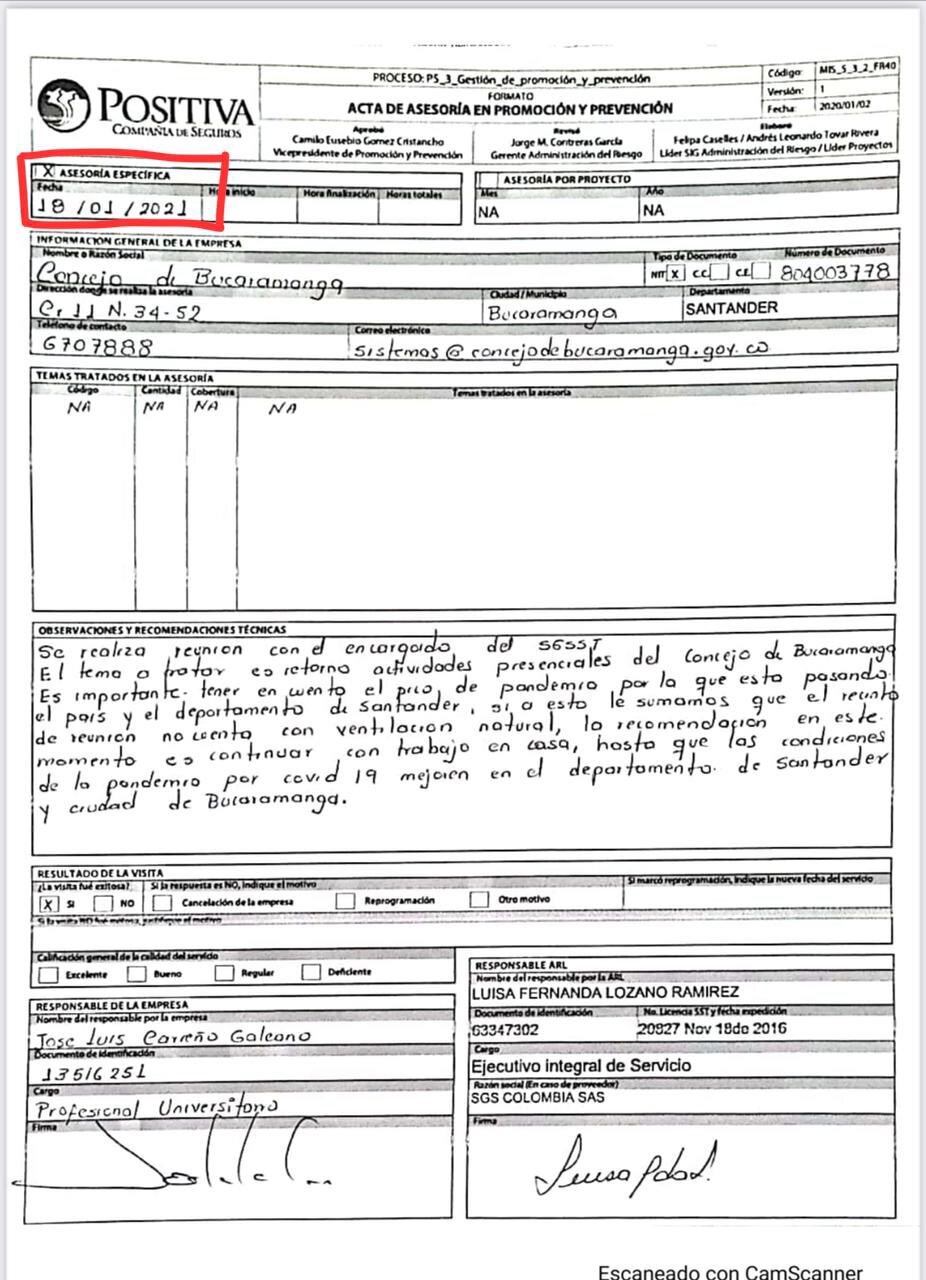 POSITIVA
COMPAÑIA DE SEGUROS
PROCESO: PS_3_Gestión_de_promoción_y_prevención
FORMATO
ACTA DE ASESORÍA EN PROMOCIÓN Y PREVENCIÓN
Aprobó
Camilo Eusebio Gomez Cristancho
Vicepresidente de Promoción y Prevención
Revisó
Jorge M. Contreras García
Gerente Administración del Riesgo
Elaboró
Felipa Caselles / Andrés Leonardo Tovar Rivera
Líder SIG Administración del Riesgo / Líder Proyectos
Código: MIS_5_3_2_FR40
Versión: 1
Fecha: 2020/01/02
X ASESORÍA ESPECÍFICA
Fecha Hora inicio Hora finalización Horas totales
18 / 01 / 2021
ASESORÍA POR PROYECTO
Mes Año
NA NA
INFORMACION GENERAL DE LA EMPRESA
Nombre o Razón Social Tipo de Documento Número de Documento
Concejo de Bucaramanga NIT X CC CE 804003778
Dirección donde se realiza la asesoría Ciudad / Municipio Departamento
Cr 11 N. 34-52 Bucaramanga SANTANDER
Teléfono de contacto Correo electrónico
6707888 sistemas@concejodebucaramanga.gov.co
TEMAS TRATADOS EN LA ASESORÍA
Código Cantidad Cobertura Temas tratados en la asesoría
NA NA NA NA
OBSERVACIONES Y RECOMENDACIONES TÉCNICAS
Se realiza reunion con el encargado del SGSST
El tema a tratar es retorno actividades presenciales del Concejo de Bucaramanga
Es importante tener en cuenta el pico, de pandemia por la que esta pasando
el pais y el departamento de Santander, si a esto le sumamos que el recinto
de reunion no cuenta con ventilacion natural, la recomendacion en este
momento es continuar con trabajo en casa, hasta que las condiciones
de la pandemia por covid 19 mejoren en el departamento de Santander
y ciudad de Bucaramanga.
RESULTADO DE LA VISITA
¿La visita fué exitosa? Si la respuesta es NO, indique el motivo Si marcó reprogramación, indique la nueva fecha del servicio
X SI NO Cancelación de la empresa Reprogramación Otro motivo
Si la visita NO fué exitosa, justifique el motivo
Calificación general de la calidad del servicio
Excelente Bueno Regular Deficiente
RESPONSABLE DE LA EMPRESA
Nombre del responsable por la empresa
Jose Luis Carreño Galeano
Documento de identificación
13516251
Cargo
Profesional Universitario
Firma
RESPONSABLE ARL
Nombre del responsable por la ARL
LUISA FERNANDA LOZANO RAMIREZ
Documento de identificación No. Licencia SST y fecha expedición
63347302 20827 Nov 18do 2016
Cargo
Ejecutivo integral de Servicio
Razón social (En caso de proveedor)
SGS COLOMBIA SAS
Firma
Escaneado con CamScanner